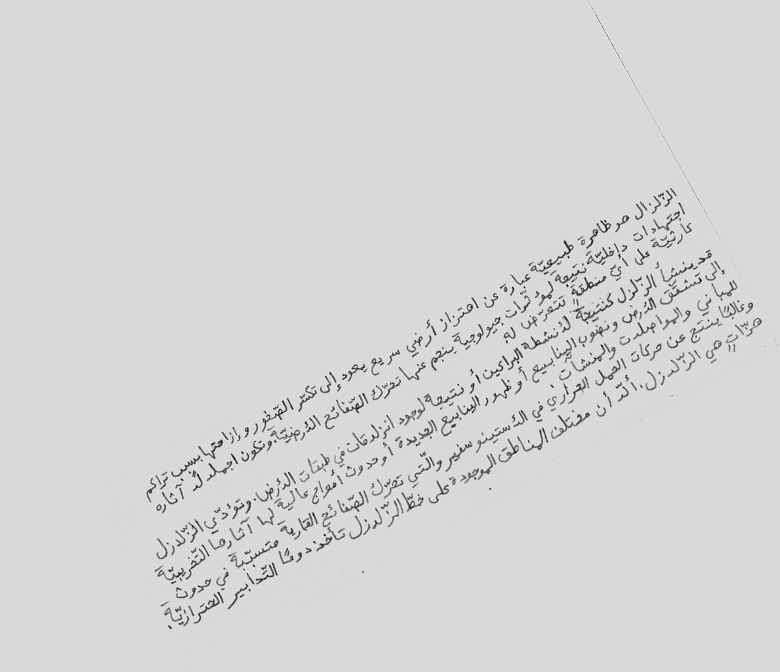 الزّلزال هو ظاهرة طبيعيّة عبارة عن اهتزاز أرضي سريع يعود إلى تكسّر الصّخور وإزاحتها بسبب تراكم
اجتهادات داخليّة نتيجة لمؤثّرات جيولوجية ينجم عنها تحرّك الصّفائح الأرضيّة. وتكون اجمالاً آثاره
كارثيّة على أيّ منطقةٍ تتعرّض له.
قد ينشأ الزّلزال كنتيجةٍ لأنشطة البراكين أو نتيجة لوجود انزلاقات في طبقات الأرض. وتؤدّي الزّلازل
إلى تشقّق الأرض ونضوب الينابيع أو ظهور الينابيع الجديدة أو حدوث أمواج عالية لها آثارها التّخريبيّة
للمباني والمواصلات والمنشآت.
وغالبًا ينتج عن حركات الحمل الحراري في الأستينوسفير والّتي تحرّك الصّفائح القارية متسبّبة في حدوث
هزّاتٍ هي الزّلازل. ألّا أن مختلف المناطق الموجودة على خطّ الزّلازل تأخذ دومًا التّدابير الاحترازيّة.